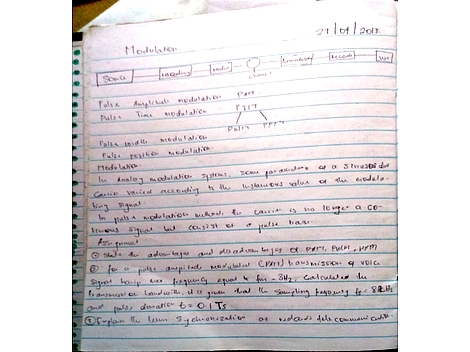 27/09/2017
Modulation
Source encoding modu channel Demodulat Decode User
Pulse Amplitude modulation PAM
Pulse Time modulation PTM
PWM PPM
Pulse width modulation
Pulse position modulation
Modulation
In Analog modulation systems, some parameters of a sinusoidal
Carrier varied according to the instanous value of the modula-
ting signal.
In pulse modulation methods the carrier is no longer a co-
tinuous signal but consist of a pulse train.
Assignment
① State the advantages and disadvantages of PAM, PWM, PPM
② for a pulse amplitude modulated (PAM) transmission of voice
signal having frequency equal to fm = 3Hz, Calculate the
transmission bandwith, it is given that the sampling frequency fs = 8
and pulse duration t = 0.1 Ts
③ Explain the term Sychronization as telecommunication